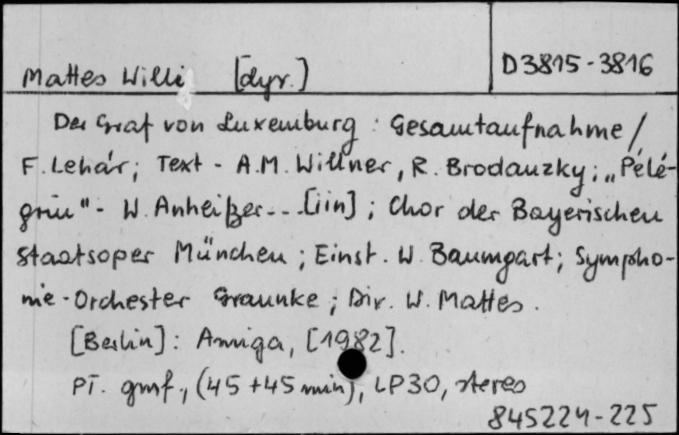 Mattes Willi [dyr.]
D3815-3816
Der Graf von Luxemburg : Gesamtaufnahme /
F. Lehár; Text - A.M. Willner, R. Brodauzky; „Pélé-
grin" - W. Anheißer... [iin] ; Chor der Bayerischen
Staatsoper München ; Einst. W. Baumgart; Sympho-
nie-Orchester Graunke ; Dir. W. Mattes.
[Berlin] : Amiga, [1982].
Pł. gmf., (45 + 45 min), LP30, stereo
845224-225